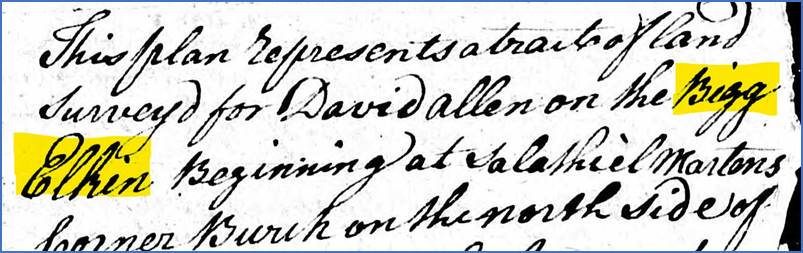 This plan represents a tract of land
survey'd for David allen on the Bigg
Elkin Beginning at Salathiel Martens
Corner Burch on the north side of